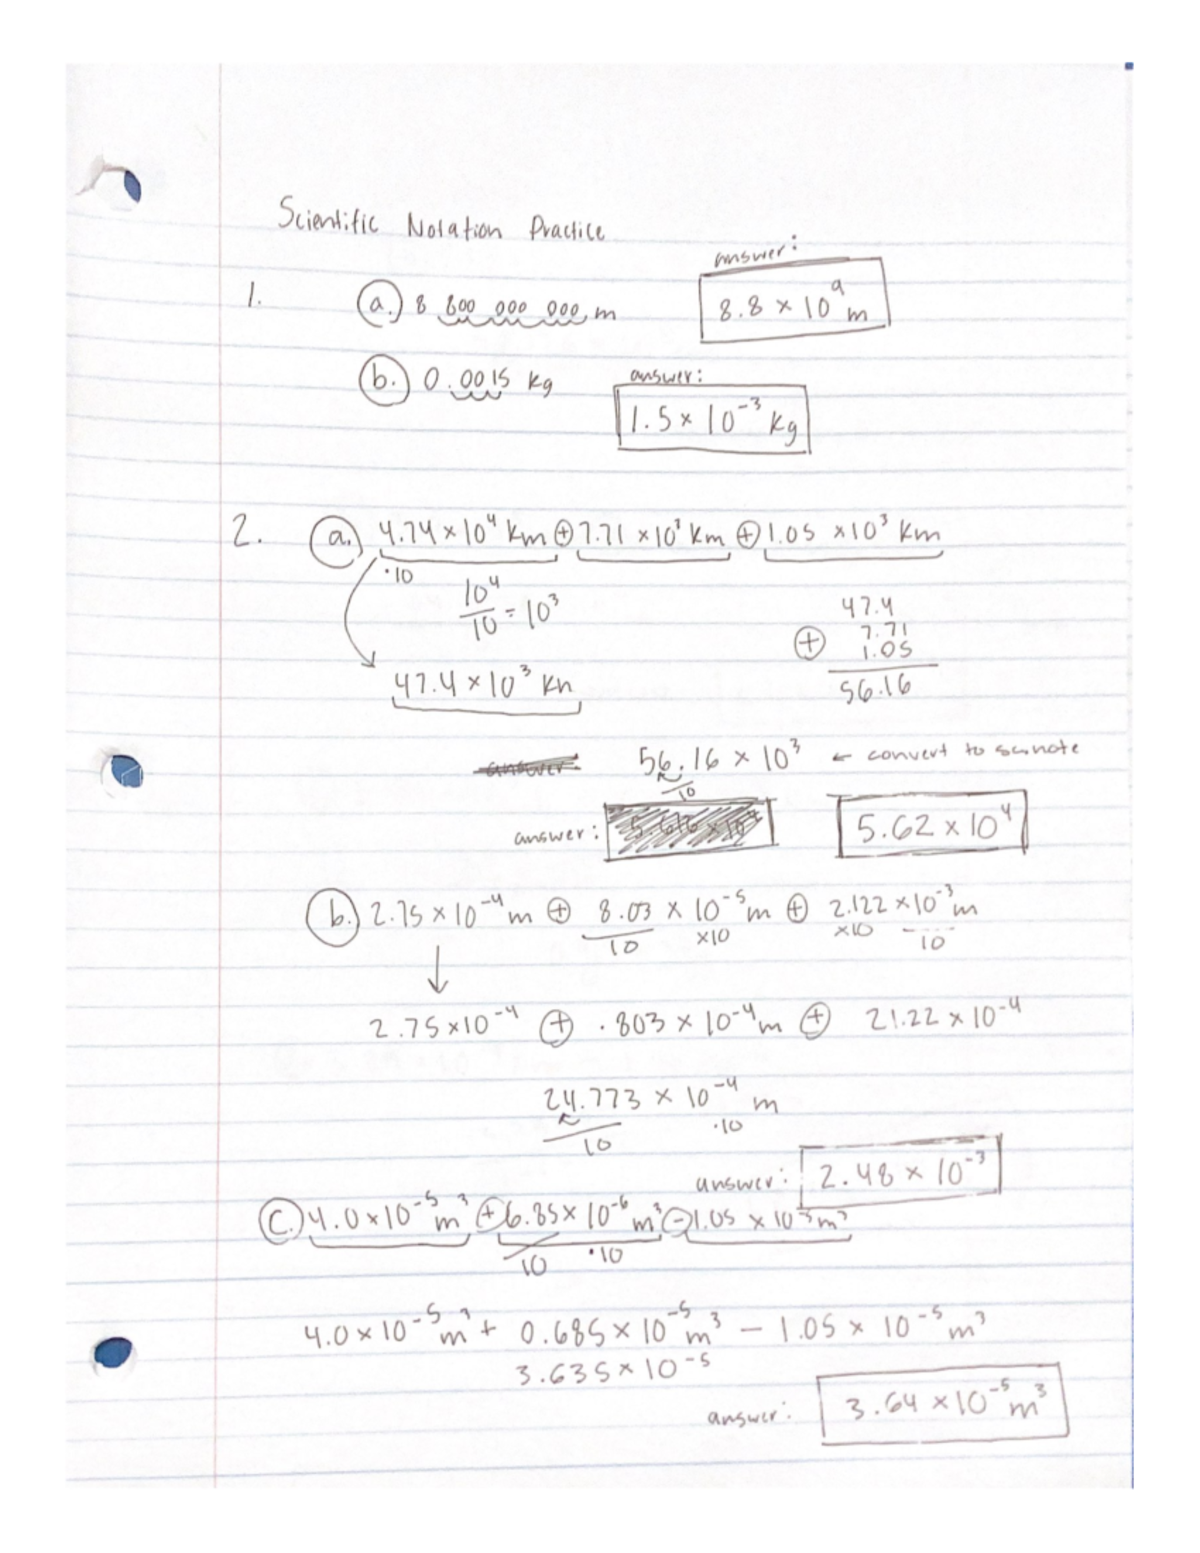 Scientific Notation Practice
answer:
1. a.) 8 800 000 000 m 8.8 × 10⁹ m
b.) 0.0015 kg answer:
1.5 × 10⁻³ kg
2. a.) 4.74 × 10⁴ km ⊕ 7.71 × 10³ km ⊕ 1.05 × 10³ km
·10
10⁴/10 = 10³
47.4
⊕ 7.71
1.05
47.4 × 10³ km
56.16
56.16 × 10³ ← convert to sci note
10
answer: 5.62 × 10⁴
b.) 2.75 × 10⁻⁴ m ⊕ 8.03 × 10⁻⁵ m ⊕ 2.122 × 10⁻³ m
10 ×10 ×10 10
2.75 × 10⁻⁴ ⊕ .803 × 10⁻⁴ m ⊕ 21.22 × 10⁻⁴
24.773 × 10⁻⁴ m
10 ·10
answer: 2.48 × 10⁻³
c.) 4.0 × 10⁻⁵ m³ ⊕ 6.85 × 10⁻⁶ m³ ⊖ 1.05 × 10⁻⁵ m³
10 ·10
4.0 × 10⁻⁵ m³ + 0.685 × 10⁻⁵ m³ − 1.05 × 10⁻⁵ m³
3.635 × 10⁻⁵
answer: 3.64 × 10⁻⁵ m³